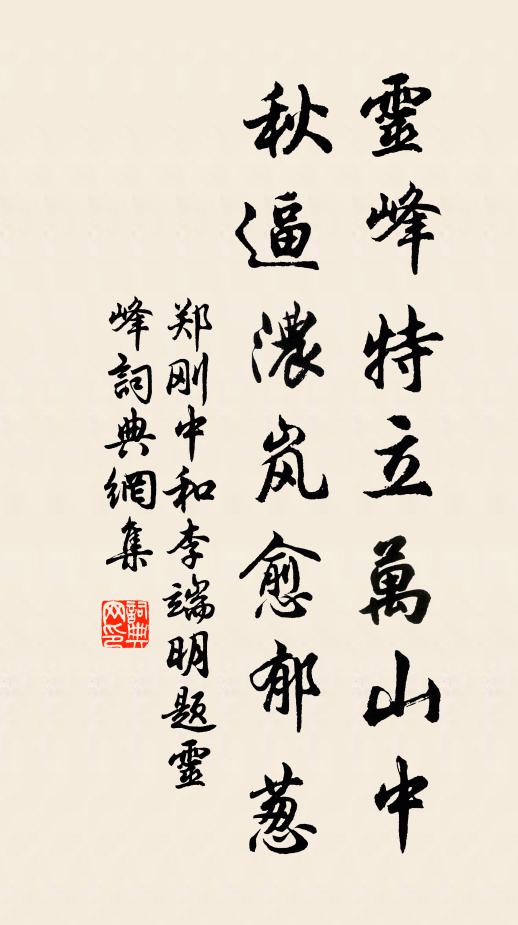 靈峰特立萬山中
秋逼濃岚愈郁葱
郑刚中和李端明题靈
峰詞典網集
詞典
网印